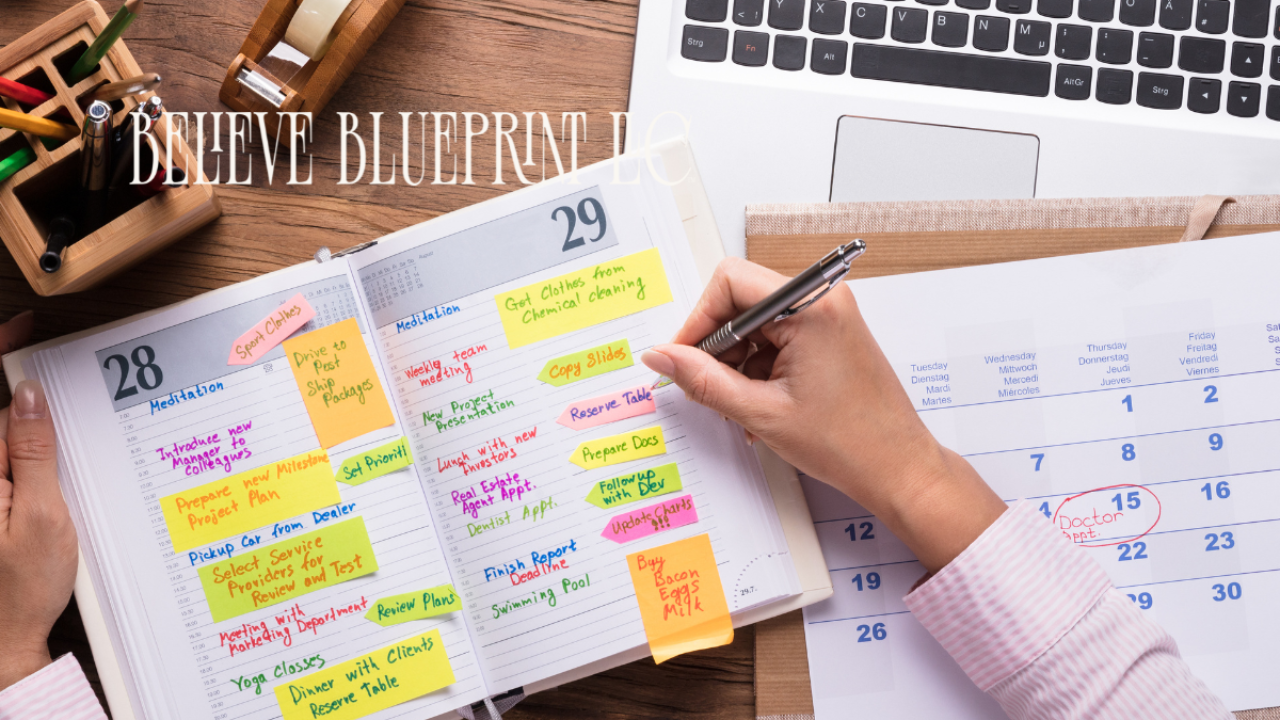 BELIEVE BLUEPRINT LC
28
Sport Clothes
Drive to
Post
Ship
Packages
Meditation
Introduce new
Manager to
colleagues
Set Prioriti
Prepare new Milestone
Project Plan
Pickup Car from Dealer
Select Service
Providers for
Review and Test
Meeting with
Marketing Department
Review Plans
Yoga Classes
Dinner with Clients
Reserve Table
29
August
Meditation
Get Clothes from
Chemical cleaning
Weekly team
meeting
Copy Slides
New Project
Presentation
Reserve Table
Lunch with new
Investors
Prepare Docs
Real Estate
Agent Appt.
Follow up
with Dev
Dentist Appt.
Update Charts
!!!
Finish Report
Deadline
Swimming Pool
Buy
Bacon
Eggs
Milk
Strg
Fn
Alt
AltGr
Strg
Y X C V B N M µ
Tuesday
Dienstag
Mardi
Martes
Wednesday
Mittwoch
Mercredi
Miércoles
Thursday
Donnerstag
Jeudi
Jueves
Friday
Freitag
Vendredi
Viernes
1 2
7 8 9
15 16
Doctor
Appt.
12
22 23
19
29 30
26